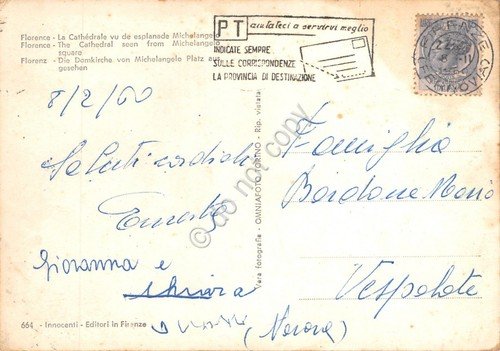 Florence - La Cathédrale vu de esplanade Michelangelo
Florence - The Cathedral seen from Michelangelo
square
Florenz - Die Domkirche von Michelangelo Platz aus
gesehen
PT aiutateci a servirvi meglio
INDICATE SEMPRE
SULLE CORRISPONDENZE
LA PROVINCIA DI DESTINAZIONE
FIRENZE
8/2/60
Saluti cordiali
Giovanna e
Famiglia
Bordone Mario
Vespolate
(Novara)
Vera fotografia - OMNIAFOTO TORINO - Rip. vietata
664 - Innocenti - Editori in Firenze
do not copy